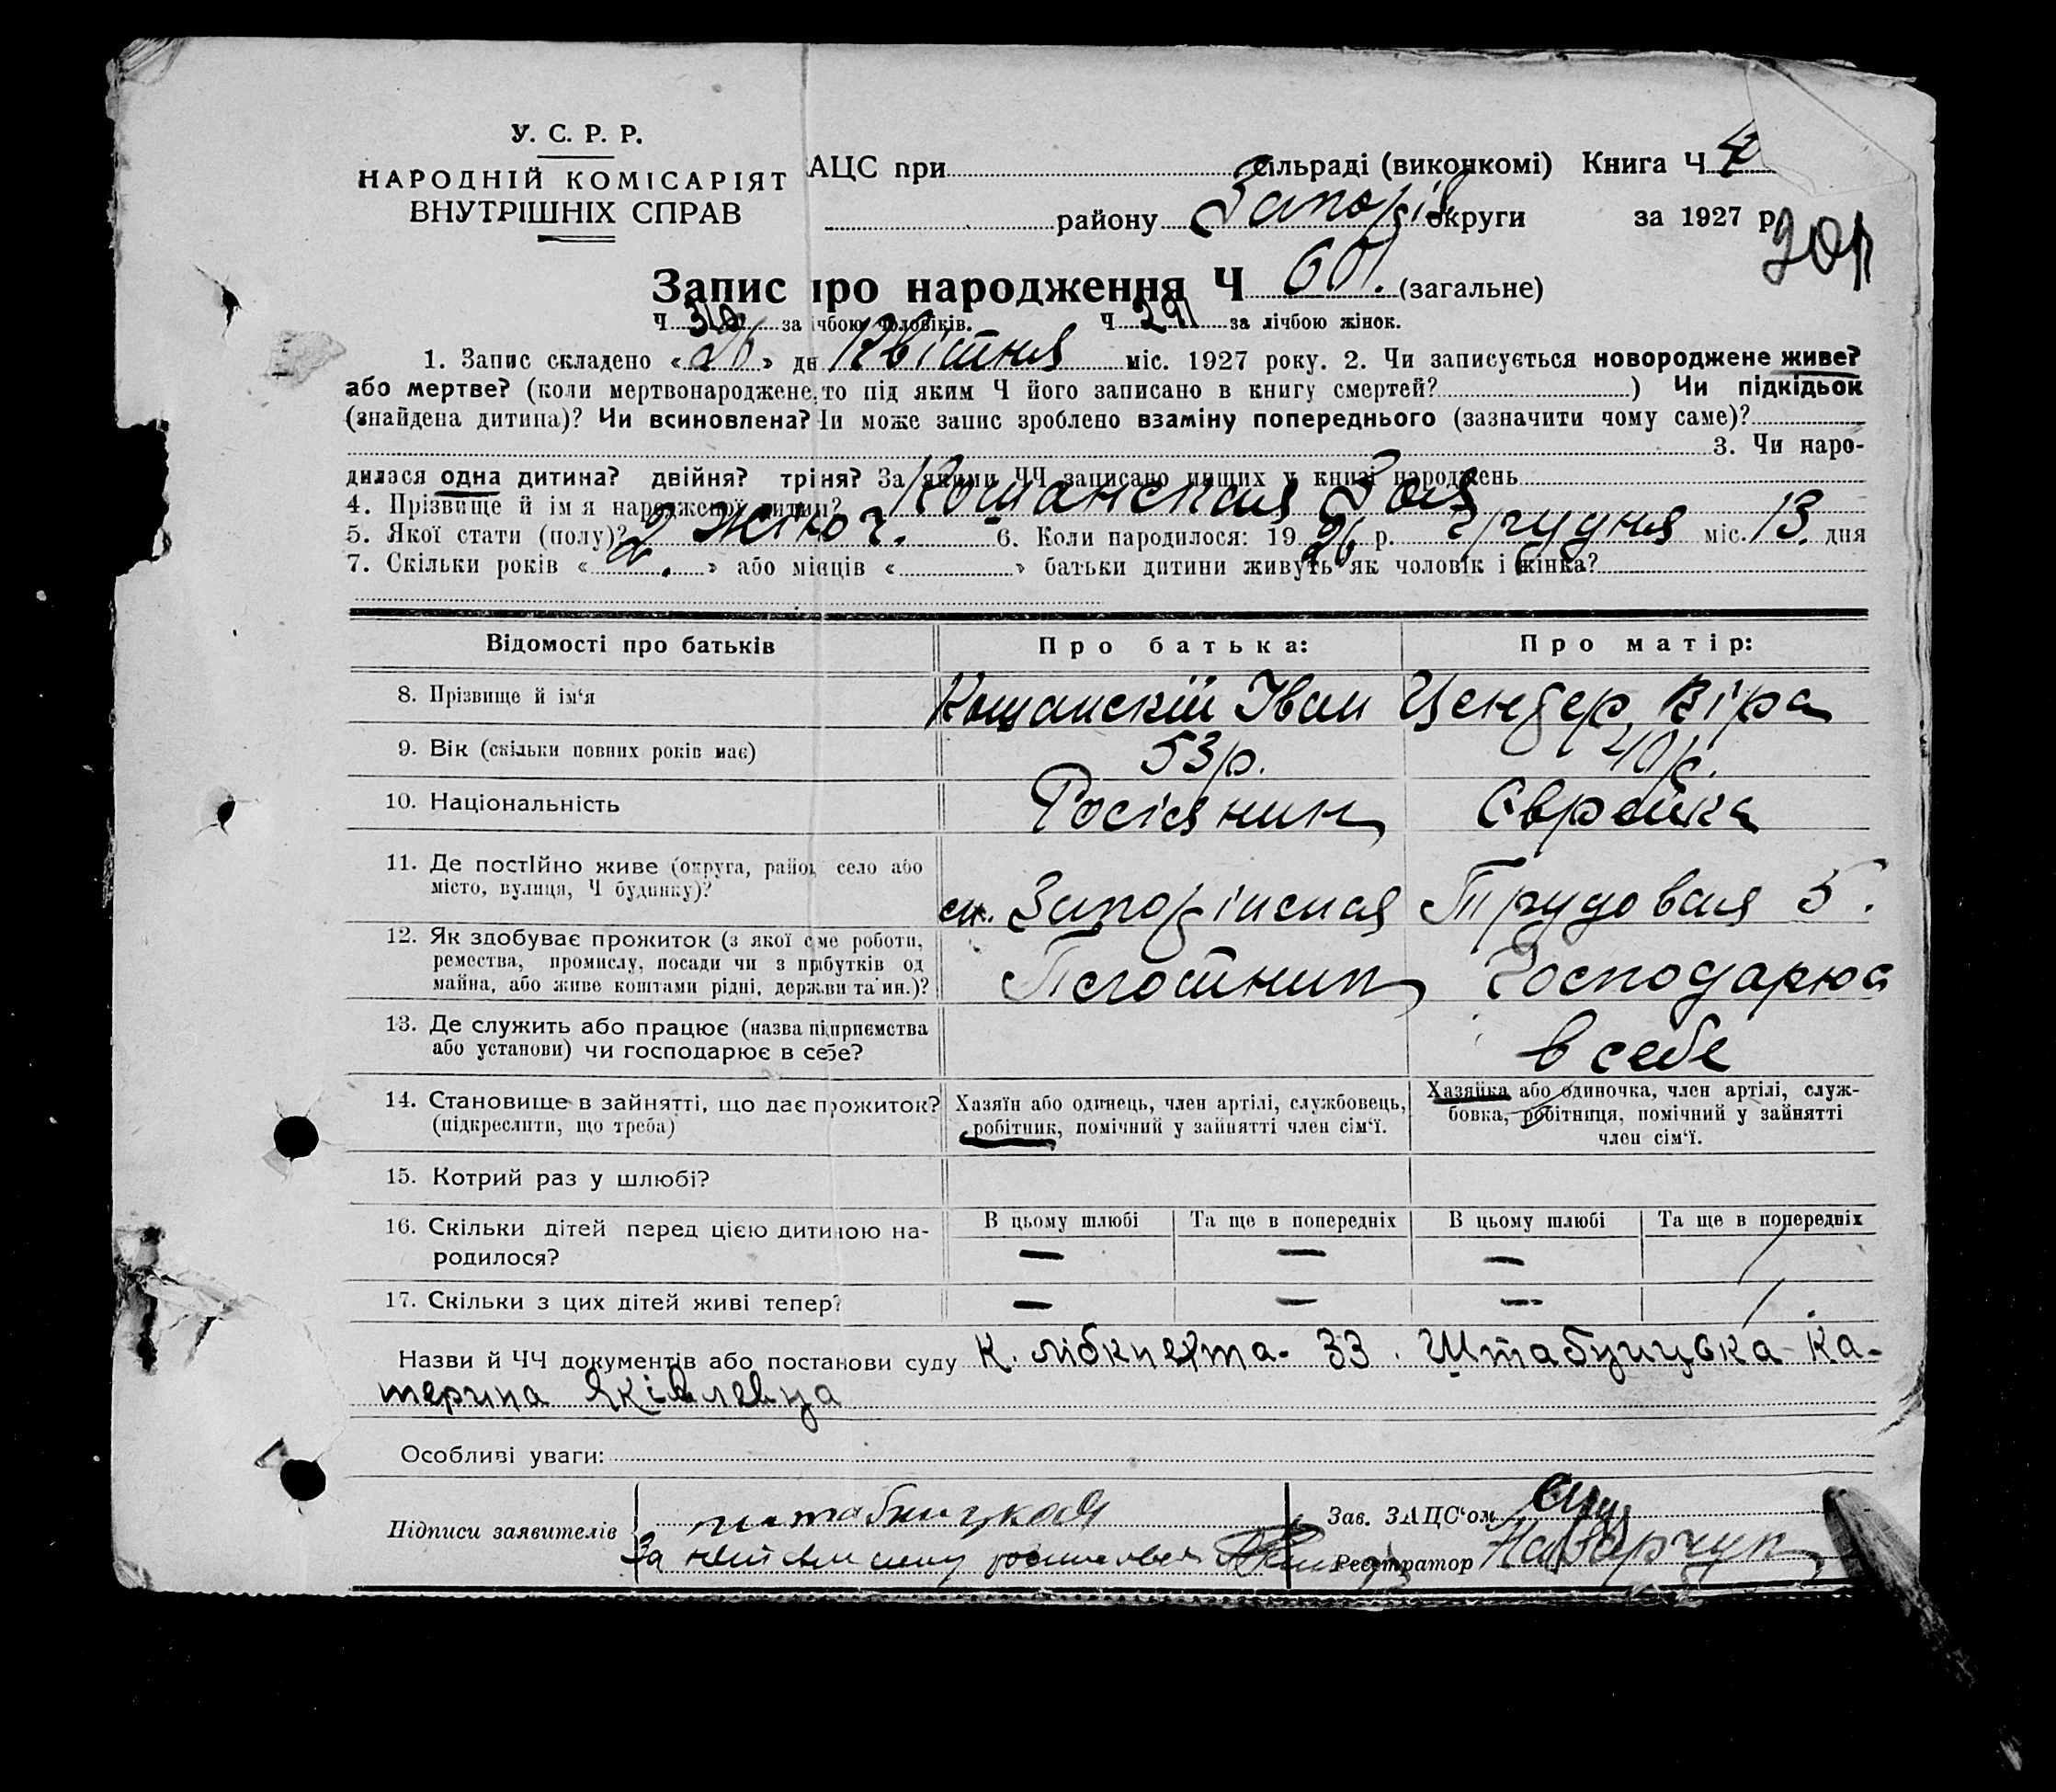 У. С. Р. Р.
НАРОДНІЙ КОМІСАРІЯТ
ВНУТРІШНІХ СПРАВ
АЦС при сільраді (виконкомі) Книга Ч
району Запоріз округи за 1927 р.
Запис про народження Ч 601. (загальне)
Ч 310 за лічбою чоловіків. Ч 291 за лічбою жінок.
1. Запис складено «26» дн Квітня міс. 1927 року. 2. Чи записується новороджене живе?
або мертве? (коли мертвонароджене, то під яким Ч його записано в книгу смертей? ) Чи підкідьок
(знайдена дитина)? Чи всиновлена? Чи може запис зроблено взаміну попереднього (зазначити чому саме)?
3. Чи наро-
дилася одна дитина? двійня? тріня? За якими ЧЧ записано инших у книзі народжень
4. Прізвище й ім'я народженої дитини? Кощанская Зоя
5. Якої стати (полу)? 2 жіноч. 6. Коли народилося: 1926 р. грудня міс. 13. дня
7. Скільки років « 2. » або місяців « » батьки дитини живуть як чоловік і жінка?
Відомості про батьків Про батька: Про матір:
8. Прізвище й ім'я Кощанскій Іван Цендер, Віра
9. Вік (скільки повних років має) 53 р. 40 р.
10. Національність Росіянин Єврейка
11. Де постійно живе (округа, район, село або
місто, вулиця, Ч будинку)? Запоріжская Трудовая 5.
12. Як здобуває прожиток (з якої саме роботи,
ремества, промислу, посади чи з прибутків од
майна, або живе коштами рідні, держави та ин.)? Господарює
13. Де служить або працює (назва підприємства
або установи) чи господарює в себе? в себе
14. Становище в зайнятті, що дає прожиток?
(підкреслити, що треба)
Хазяїн або одинець, член артілі, службовець,
робітник, помічний у зайнятті член сім'ї.
Хазяйка або одиночка, член артілі, служ-
бовка, робітниця, помічний у зайнятті
член сім'ї.
15. Котрий раз у шлюбі?
16. Скільки дітей перед цією дитиною на-
родилося?
В цьому шлюбі Та ще в попередніх В цьому шлюбі Та ще в попередніх
— — — /
17. Скільки з цих дітей живі тепер? — — — /
Назви й ЧЧ документів або постанови суду К. лібкнехта- 33. Штабницька Ка-
терина Яківлевна
Особливі уваги:
Підписи заявителів штабницкая
За
Зав. ЗАЦС'ом
Реєстратор Назарчук